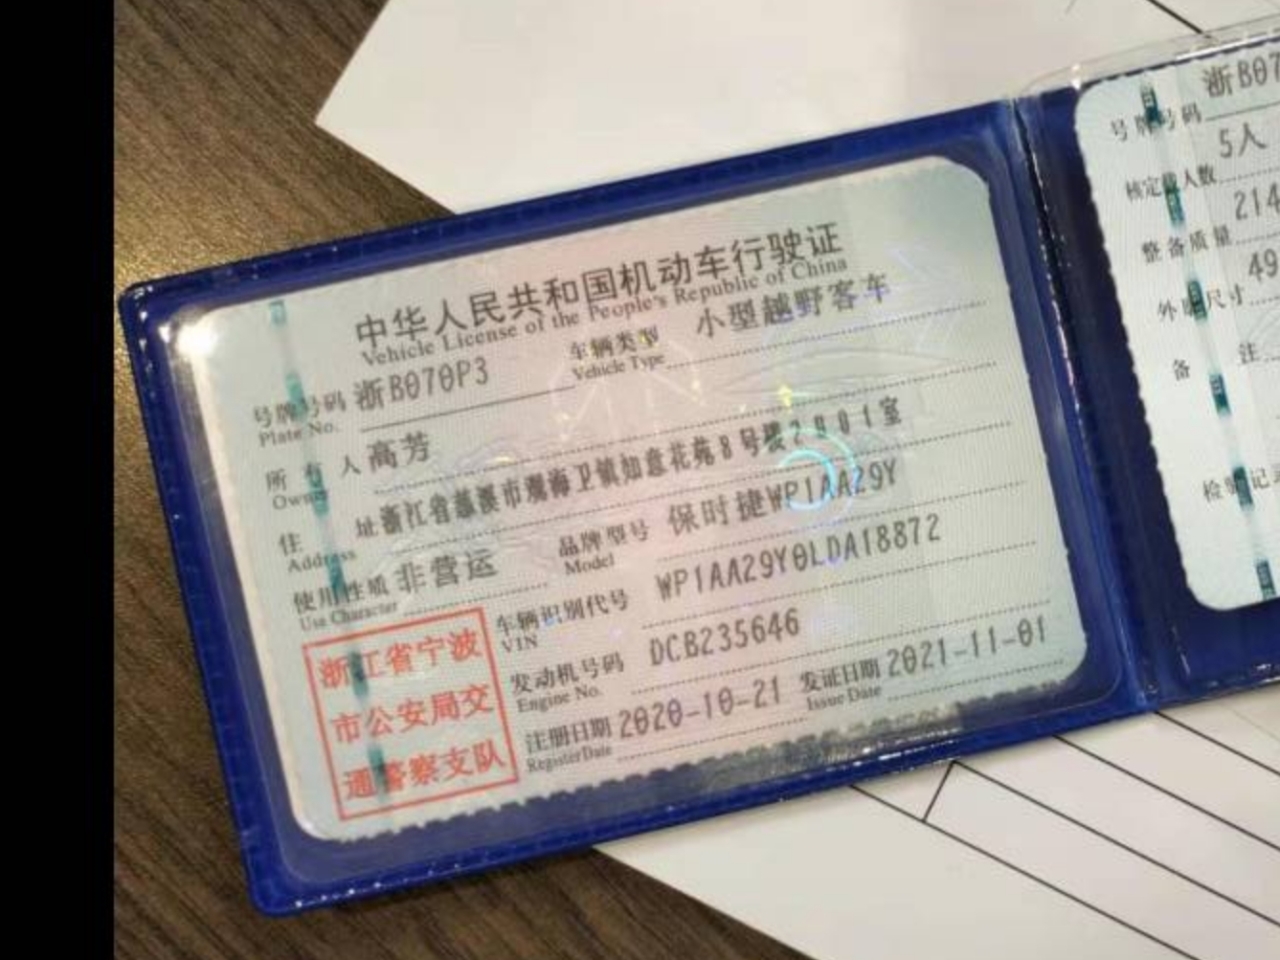 中华人民共和国机动车行驶证
Vehicle License of the People's Republic of China
号牌号码 浙B070P3 车辆类型 小型越野客车
Plate No. Vehicle Type
所有人 高芳
Owner
住址 浙江省慈溪市观海卫镇如意花苑8号楼2801室
Address
使用性质 非营运 品牌型号 保时捷WP1AA29Y
Use Character Model
车辆识别代号 WP1AA29Y0LDA18872
VIN
发动机号码 DCB235646
Engine No.
注册日期 2020-10-21 发证日期 2021-11-01
Register Date Issue Date
浙江省宁波
市公安局交
通警察支队
号牌号码 浙B07
核定载人数 5人
整备质量 214
外廓尺寸 49
备注
检验记